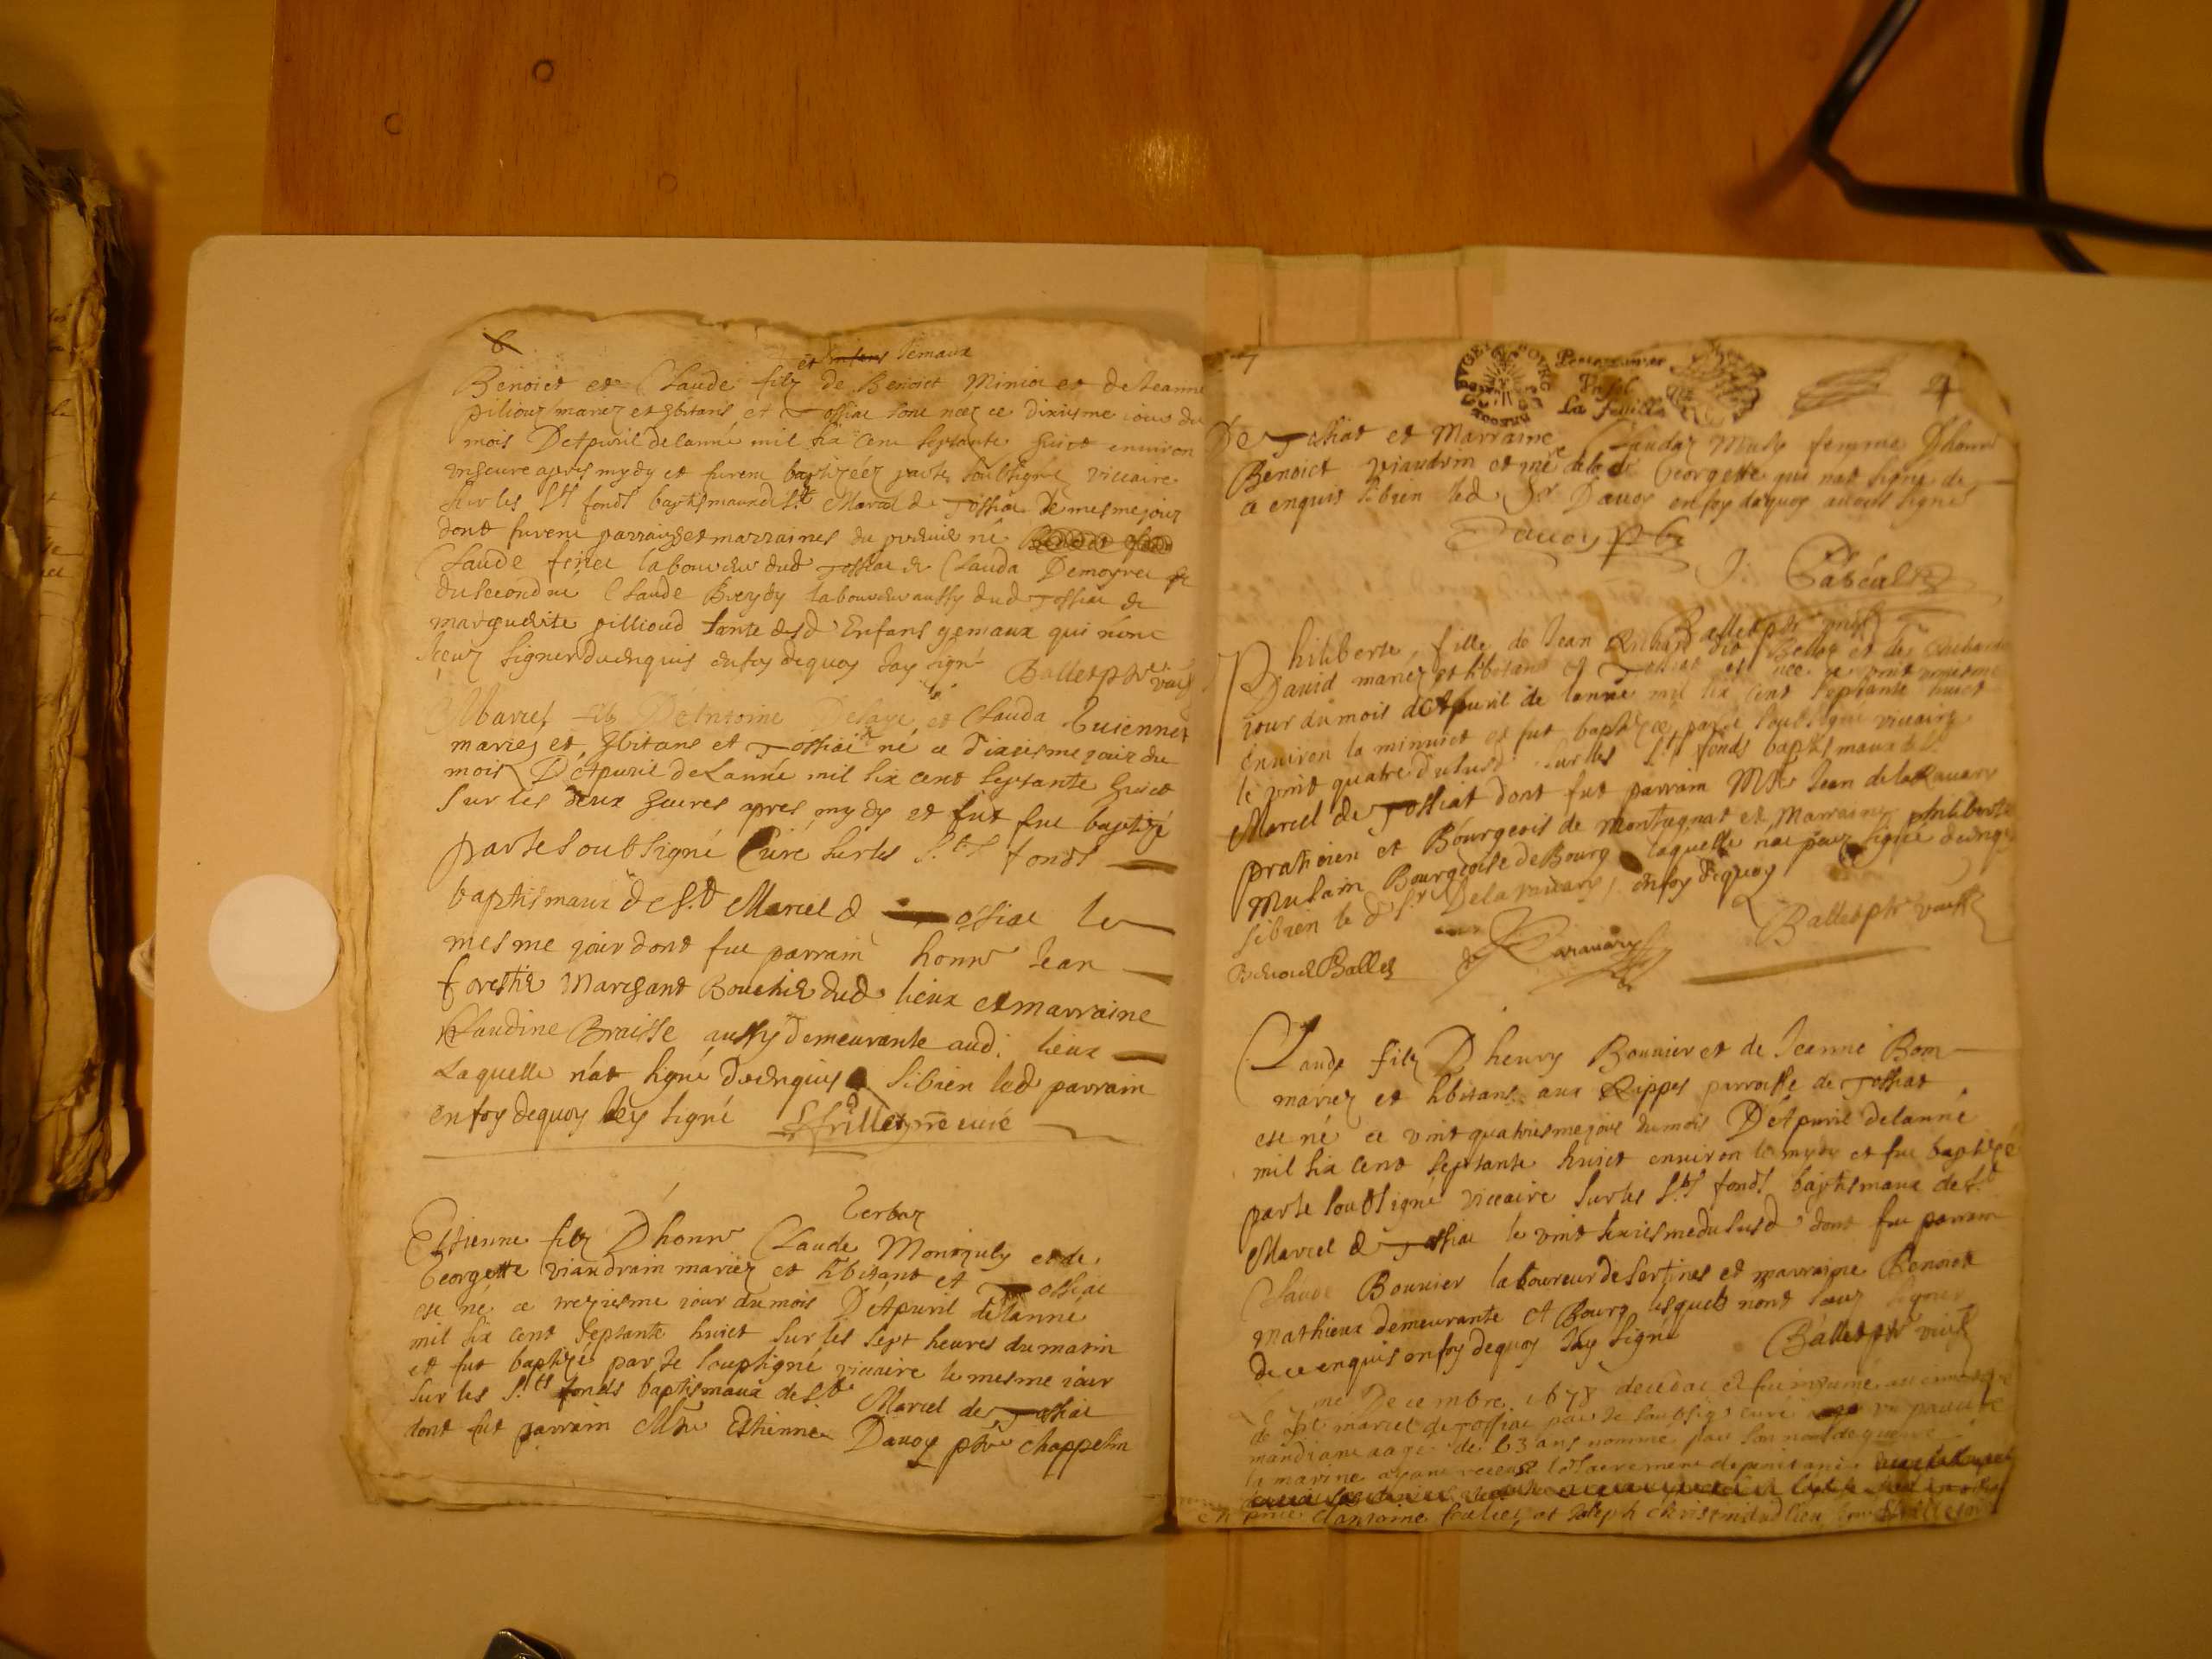 6
et Jemaux
Benoict et Claude filz de Benoict Minior et de Jeanne
piliouz mariez et hbitans et Tossiac sont neez ce dixiesme iour du
mois D'Apuril de lanné mil six cent septante huict environ
une heure apres mydy et furent baptizéez par le soubsigné viccaire
sur les Sts fonds baptismaux de St Marcel de Tossiac le mesme jour
dont furent parrains et marraines du premié né
Claude feirer laboureur dud Tossiac et Clauda Demoyrer et
du second né Claude Breydy laboureur aussy dud Tossiac et
marguerite pillioud tante desd Enfans gemaux qui n'ont
sceuz signer de ce enquis en foy de quoy Jay signé Ballet pbr vic
Marcel filz D'Antoine Delaye et Clauda Guiennet
mariez et hbitans et Tossiac né ce dixiesme jour du
mois D'Apuril de Lanné mil six cent septante huict
sur les deux heures apres mydy et fut fut baptizé
par le soubsigné Curé sur les Sts fonds
baptismaux de St Marcel de Tossiac le
mesme jour dont fut parrain honnr Jean
forestié Marchant Bouchié dud lieux et marraine
Claudine Braisse aussy demeurante aud. lieux
Laquelle n'at signé de ce enquis sibien led parrain
en foy de quoy Jey signé Frillet pre curé
Gerbaz
Estienne filz D'honnr Claude Monteguly et de
Georgette viandrain mariez et hbitant et Tossiac
est né ce treziesme iour du mois D'Apuril de lanné
mil six cent septante huict sur les sept heures du matin
et fut baptizé par le soupsigné vicaire le mesme iour
sur les Sts fonds baptismaux de St Marcel de Tossiac
dont fut parrain Mre Estienne Dauoy pbre chappelin
7
BOURG
Pour
La feuille
4
De Tossiat et Marraine Claudaz Musy femme D'honnr
Benoict viandrin et mere de lad Georgette qui nat signé de
ce enquis sibien led Sr Dauoy en foy dequoy auons signés
Dauoy pbr
J. Pascal
Philiberte, fille de Jean dit Bellet et de
Dauid mariéz et hbitans et Tossiat est née ce vint
jour du mois d'Apuril de lanné mil six cent septante huict
Environ la minuict et fut baptizée par le soubsigné vicaire
le vint quatre dususd. sur les Sts fonds baptismaux de St
Marcel de Tossiat dont fut parrain Mre Jean de la Rauary
praticien et Bourgeois de Montagnat et Marraine philiberte
Mulain Bourgeoise de Bourg laquelle na pour signée de enqs
sibien le d Sr Delarauary, en foy dequoy
Ballet pbr
Benoict Ballet
Claude filz D'henry Bouuier et de Jeanne Bom
mariez et hbitans aux Rippes parroisse de Tossiat
est né ce vint quatriesme jour du mois D'Apuril de lanné
mil six cent septante huict enuiron le mydy et fut baptizé
par le soubsigné viccaire sur les Sts fonds baptismaux de St
Marcel de Tossiac le vint sixiesme du susd dont fut parrain
Claude Bouuier laboureur de Sertines et marraine Benoite
Mathieux demeurante et Bourg lesquels nont sceuz signer
de ce enquis en foy dequoy Jay signé Ballet pbr
me Decembre 1678 decedat et fut
de St marcel de Tossiac par le soubsig curé un pauure
mandiant aagé de 63 ans nommé par son nom de guerre
la marine ayant receut le sacrement de penitance
Joseph